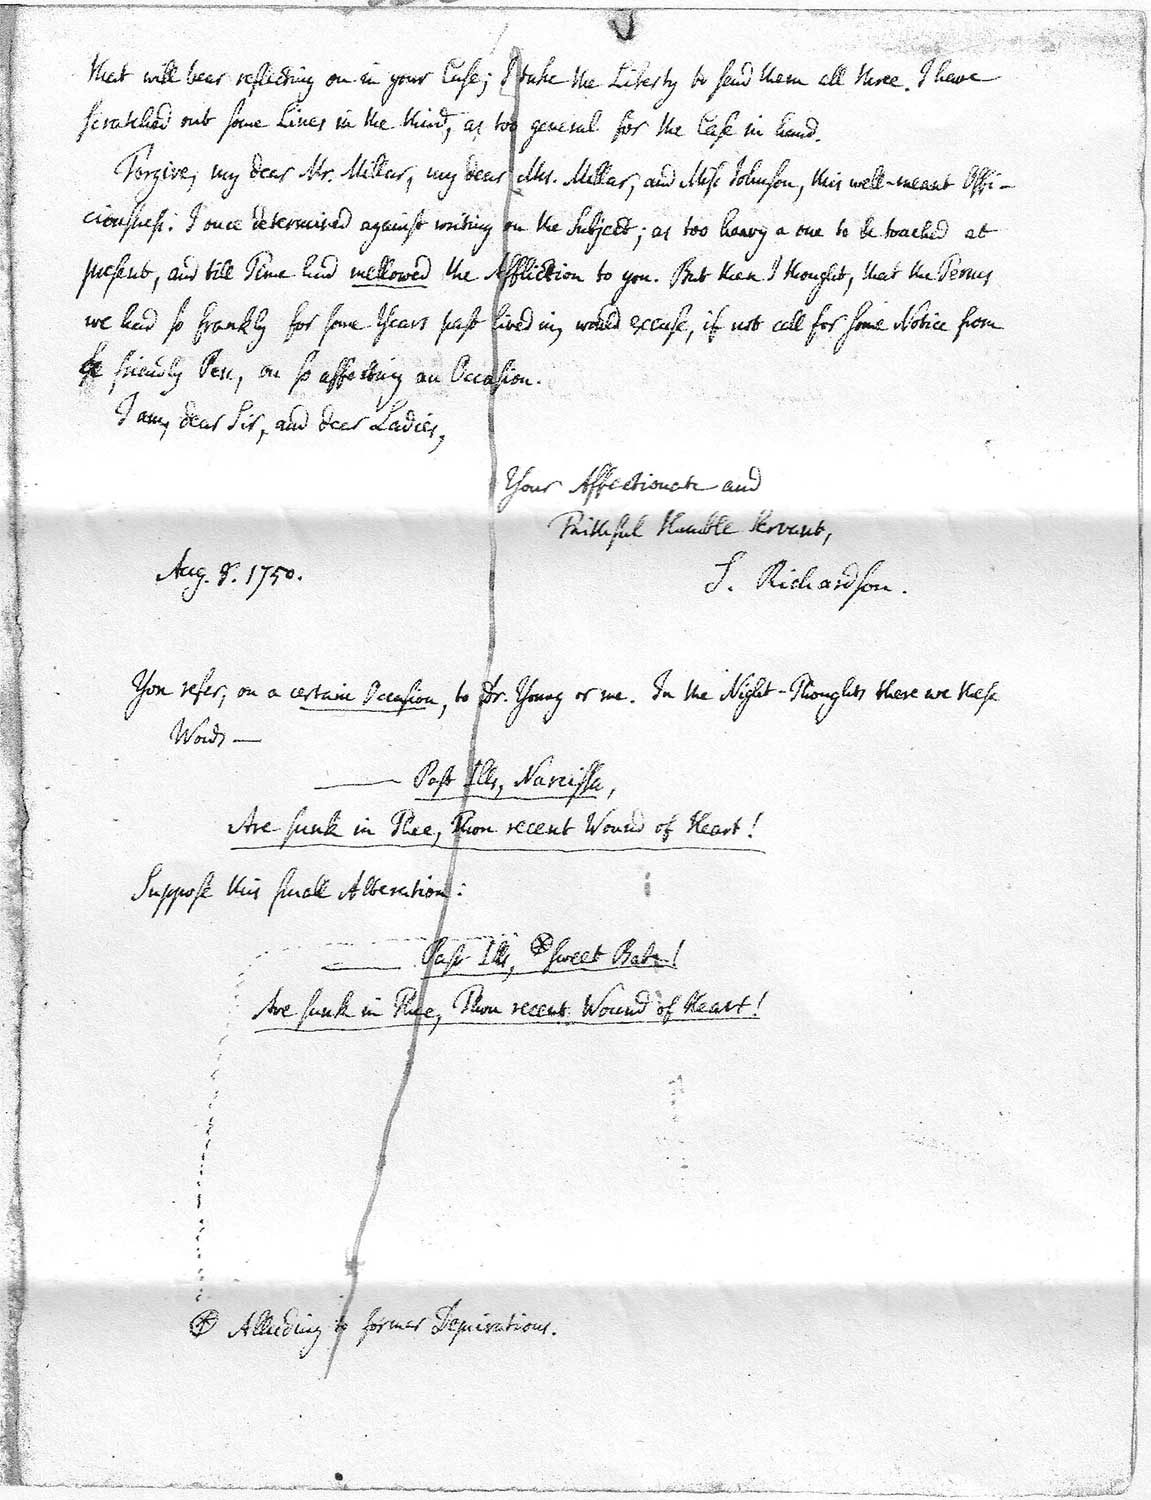 that will bear reflecting on in your Case; I take the Liberty to send them all three. I have
scratched out some Lines in the third, as too general for the Case in hand.
Forgive, my dear Mr. Millar, my dear Mrs. Millar, and Miss Johnson, this well-meant Offi-
ciousness: I once determined against writing on the Subject; as too heavy a one to be touched at
present, and till Time had mellowed the Affliction to you. But then I thought, that the Terms
we had so frankly for some Years past lived in, would excuse, if not call for some Notice from
friendly Pen, on so affecting an Occasion.
I am, dear Sir, and dear Ladies,
Your Affectionate and
Faithful Humble Servant,
Aug. 8. 1750.
S. Richardson.
You refer, on a certain Occasion, to Dr. Young or me. In the Night-Thoughts there are these
Words—
—— Past Ills, Narcissa,
Are sunk in Thee, Thou recent Wound of Heart!
Suppose this small Alteration:
—— Past Ills, ⊗ sweet Babe!
Are sunk in Thee, Thou recent Wound of Heart!
⊗ Alluding to former Deprivations.